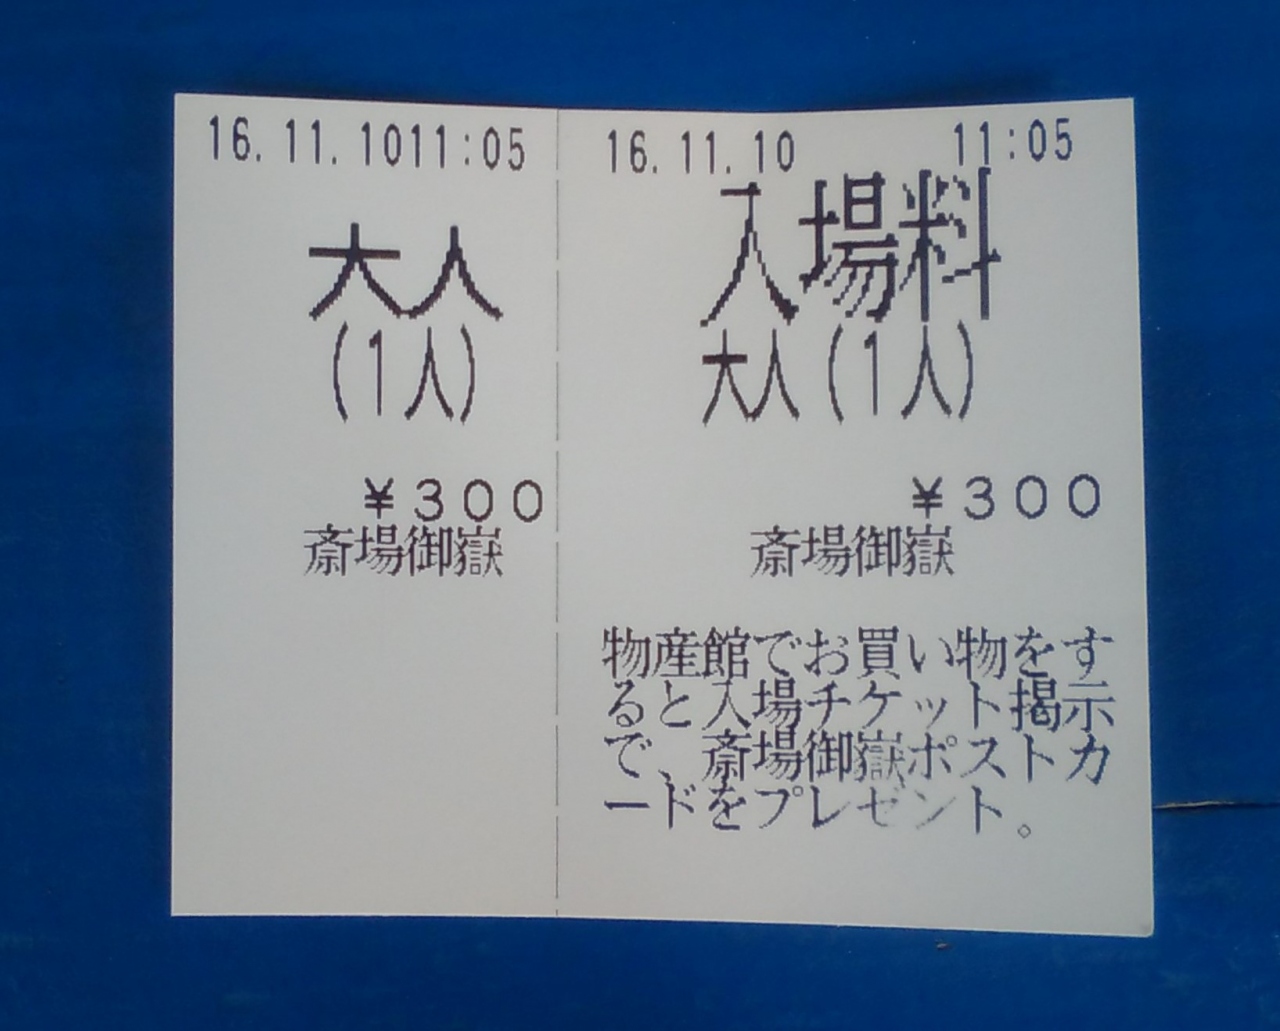 16.11.1011:05
大人
(1人)
¥300
斎場御嶽
16.11.10 11:05
入場料
大人(1人)
¥300
斎場御嶽
物産館でお買い物をす
ると入場チケット掲示
で、斎場御嶽ポストカ
ードをプレゼント。